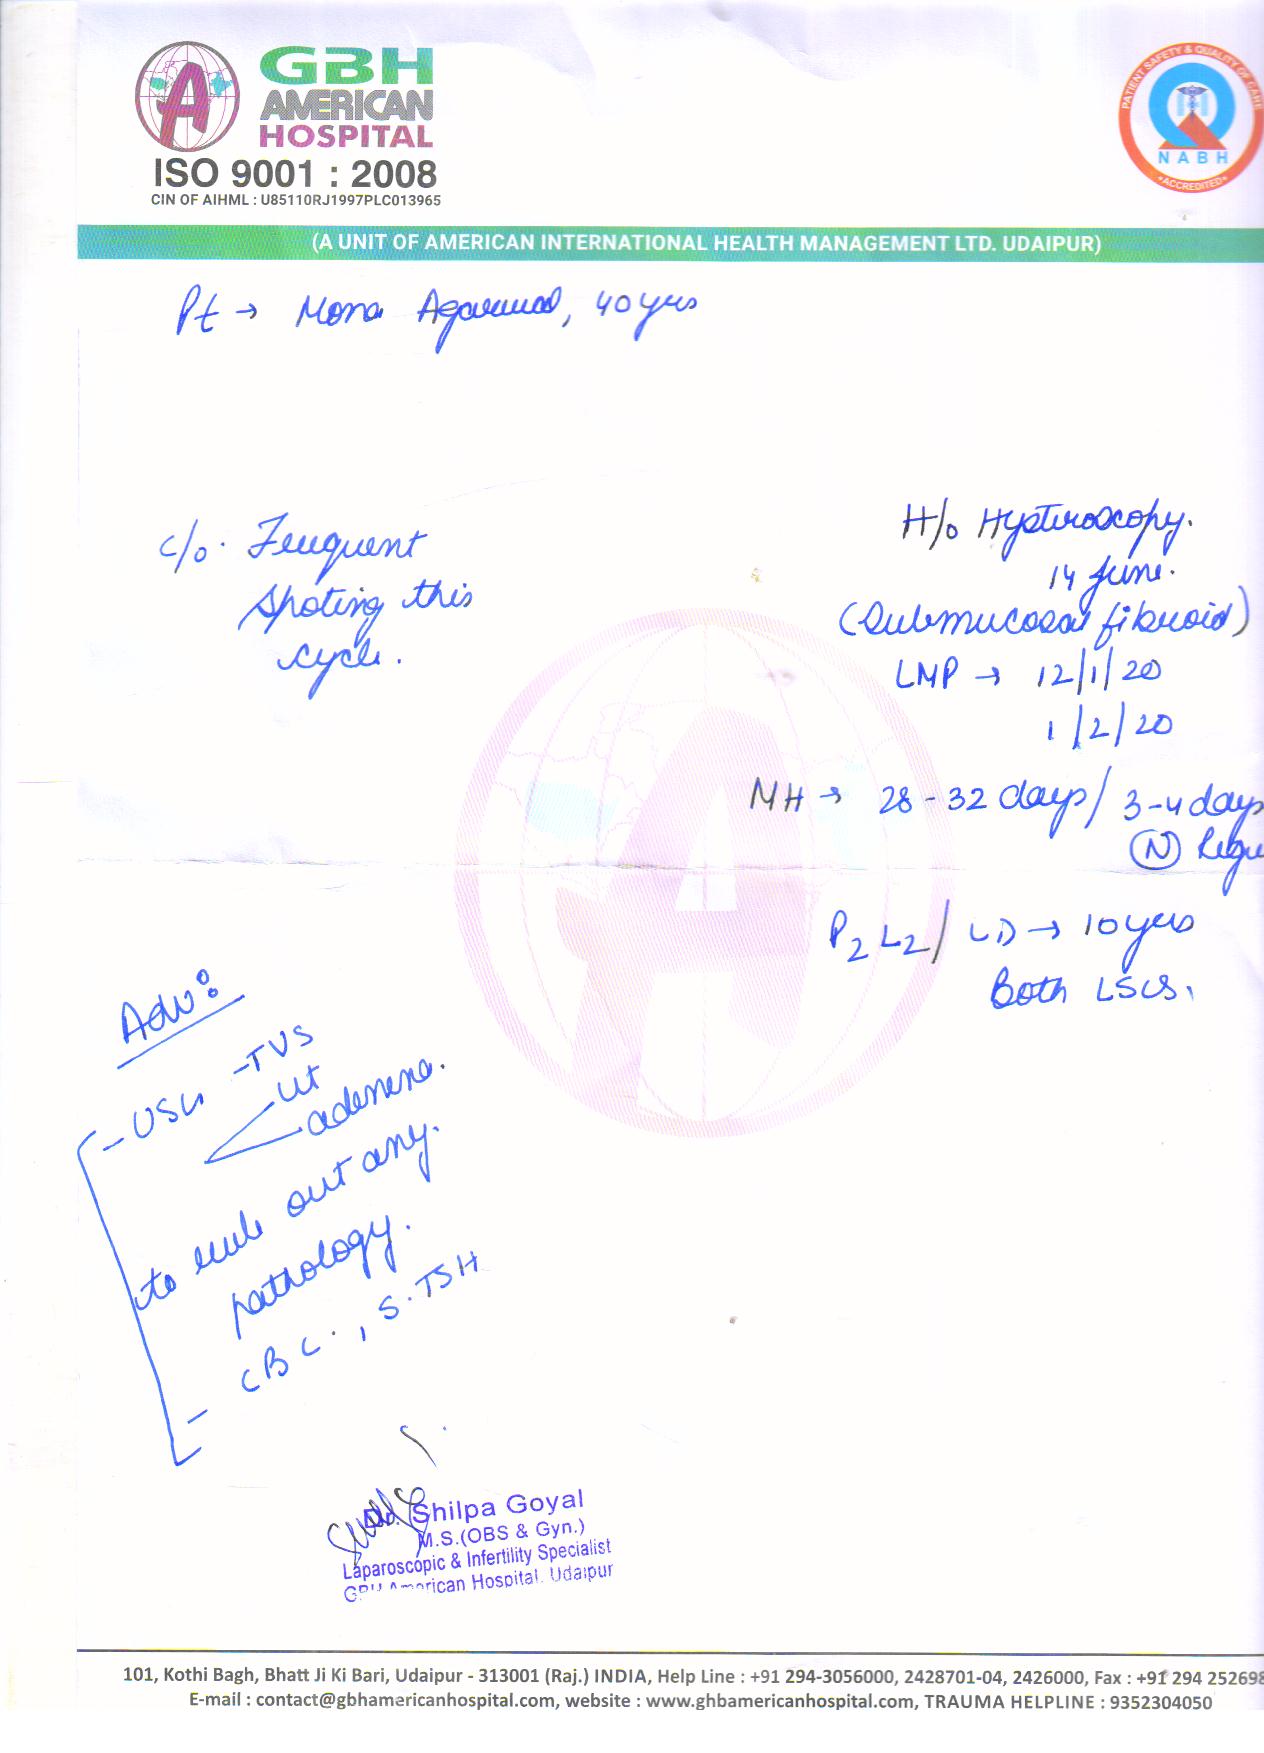 GBH
AMERICAN
HOSPITAL
ISO 9001 : 2008
CIN OF AIHML : U85110RJ1997PLC013965
PATIENT SAFETY & QUALITY OF CARE
NABH
ACCREDITED
(A UNIT OF AMERICAN INTERNATIONAL HEALTH MANAGEMENT LTD. UDAIPUR)
Pt → Mona Agarwal, 40 yrs
H/o Hysteroscopy.
14 June.
(Submucosal fibroid)
c/o. Frequent
spoting this
cycle.
LMP → 12/1/20
1/2/20
MH → 28-32 days/ 3-4 days
(N) Regu
P2 L2/ LD → 10 yrs
Both LSCS.
Adv:
- USG - TVS
ut
adenexa.
to rule out any.
pathology.
- CBC., S.TSH
Dr. Shilpa Goyal
M.S.(OBS & Gyn.)
Laparoscopic & Infertility Specialist
GBH American Hospital, Udaipur
101, Kothi Bagh, Bhatt Ji Ki Bari, Udaipur - 313001 (Raj.) INDIA, Help Line : +91 294-3056000, 2428701-04, 2426000, Fax : +91 294 252698
E-mail : contact@gbhamericanhospital.com, website : www.ghbamericanhospital.com, TRAUMA HELPLINE : 9352304050